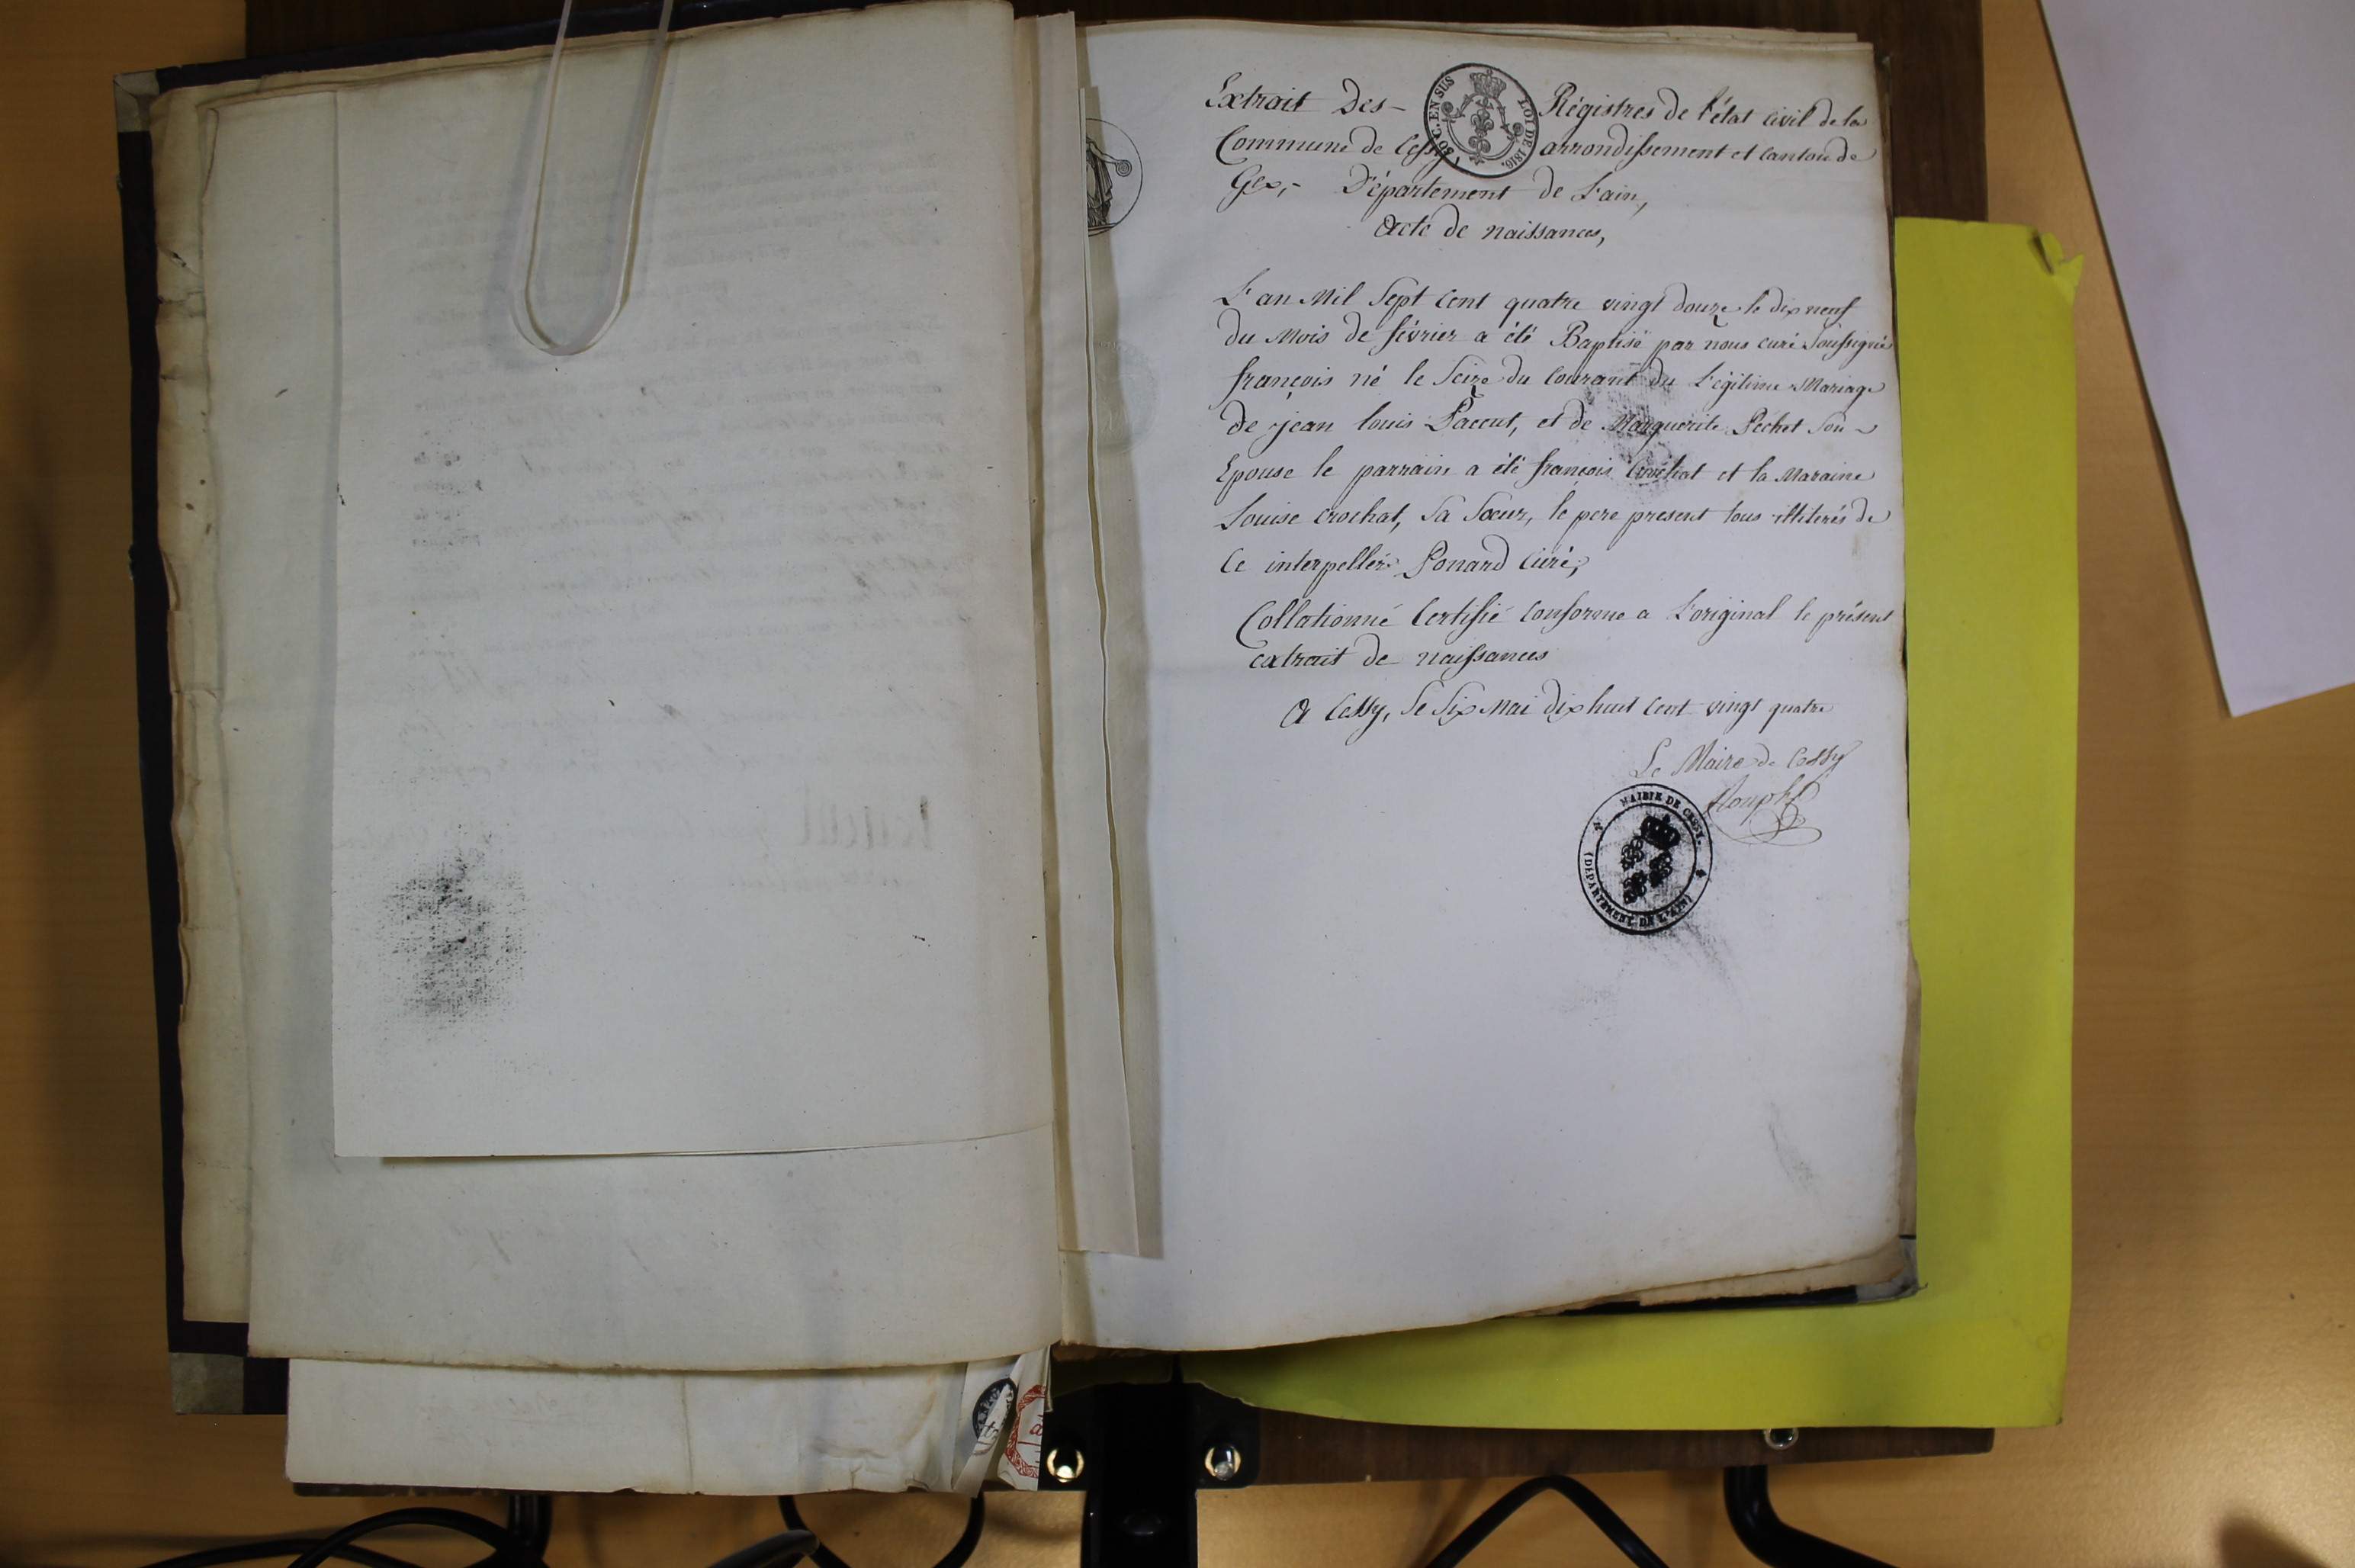 Extrait Des - Régistres de l'état Civil de la
Commune de Cessy arrondissement et Canton de
Gex, - Département de L'ain,
Acte de naissances,
L'an Mil Sept Cent quatre vingt douze le dix neuf
du Mois de février a été Baptisé par nous curé Soussigné
françois né le Seize du Courant du Légitime Mariage
de jean louis Paccut, et de Marguerite Pechet Son
Epouse le parrain a été françois Crochat et la Maraine
Louise Crochat, Sa Sœur, le pere present tous illiterés de
Ce interpellés Ponard Curé,
Collationné Certifié Conforme a L'original le présent
extrait de naissances
A Cessy, le Six Mai dix huit Cent vingt quatre
Le Maire de Cessy
50 C. EN SUS
LOI DE 1816.
MAIRIE DE CESSY.
(DÉPARTEMENT DE L'AIN)